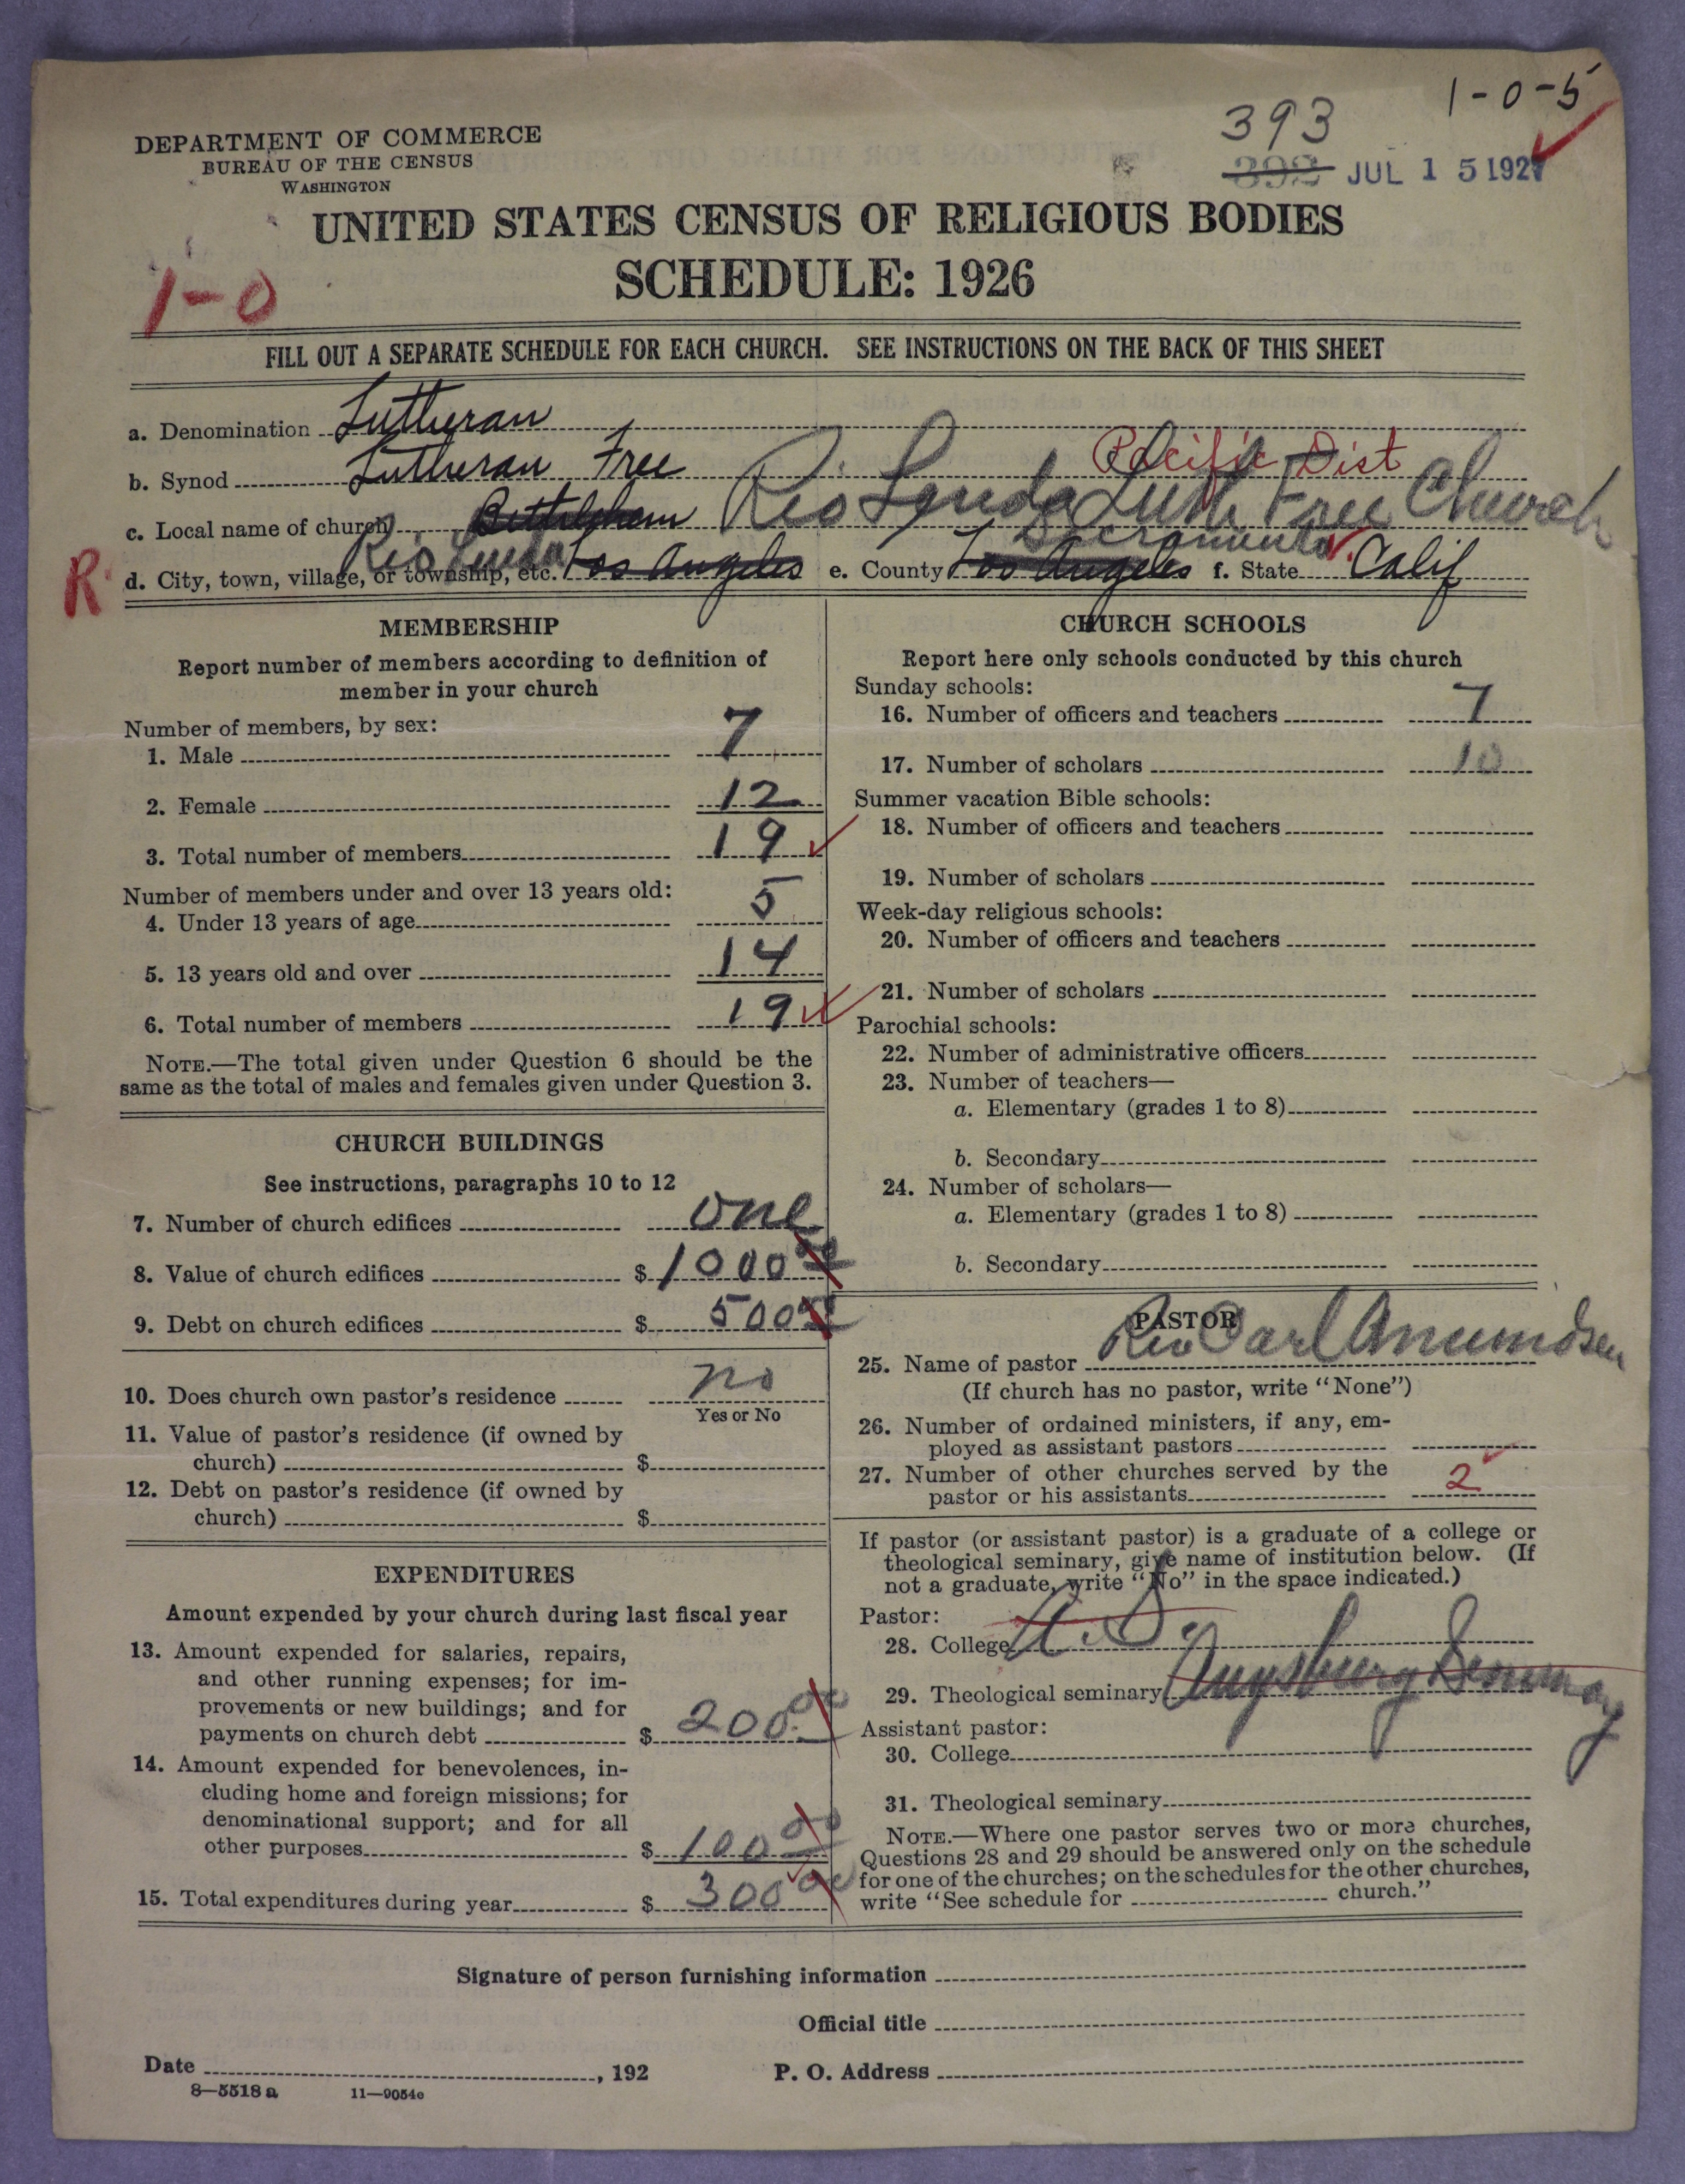 1-0-5
393
392 JUL 15 1927
DEPARTMENT OF COMMERCE
BUREAU OF THE CENSUS
WASHINGTON
UNITED STATES CENSUS OF RELIGIOUS BODIES
1-0
SCHEDULE: 1926
FILL OUT A SEPARATE SCHEDULE FOR EACH CHURCH. SEE INSTRUCTIONS ON THE BACK OF THIS SHEET
a. Denomination Lutheran
b. Synod Lutheran Free Pacific Dist
c. Local name of church Bethlehem Rio Linda Luth Free Church
R d. City, town, village, or township, etc. Rio Linda Los Angeles e. County Los Angeles Sacramento f. State Calif
MEMBERSHIP
Report number of members according to definition of
member in your church
Number of members, by sex:
1. Male 7
2. Female 12
3. Total number of members 19
Number of members under and over 13 years old:
4. Under 13 years of age 5
5. 13 years old and over 14
6. Total number of members 19
NOTE.—The total given under Question 6 should be the
same as the total of males and females given under Question 3.
CHURCH BUILDINGS
See instructions, paragraphs 10 to 12
7. Number of church edifices one
8. Value of church edifices $ 1000 00
9. Debt on church edifices $ 500
10. Does church own pastor's residence no
Yes or No
11. Value of pastor's residence (if owned by
church) $
12. Debt on pastor's residence (if owned by
church) $
EXPENDITURES
Amount expended by your church during last fiscal year
13. Amount expended for salaries, repairs,
and other running expenses; for im-
provements or new buildings; and for
payments on church debt $ 200 00
14. Amount expended for benevolences, in-
cluding home and foreign missions; for
denominational support; and for all
other purposes $ 100 00
15. Total expenditures during year $ 300 00
CHURCH SCHOOLS
Report here only schools conducted by this church
Sunday schools:
16. Number of officers and teachers 7
17. Number of scholars 10
Summer vacation Bible schools:
18. Number of officers and teachers
19. Number of scholars
Week-day religious schools:
20. Number of officers and teachers
21. Number of scholars
Parochial schools:
22. Number of administrative officers
23. Number of teachers—
a. Elementary (grades 1 to 8)
b. Secondary
24. Number of scholars—
a. Elementary (grades 1 to 8)
b. Secondary
PASTOR
25. Name of pastor Rev Carl Amundsen
(If church has no pastor, write "None")
26. Number of ordained ministers, if any, em-
ployed as assistant pastors
27. Number of other churches served by the
pastor or his assistants 2
If pastor (or assistant pastor) is a graduate of a college or
theological seminary, give name of institution below. (If
not a graduate, write "No" in the space indicated.)
Pastor:
28. College
29. Theological seminary Augsburg Seminary
Assistant pastor:
30. College
31. Theological seminary
NOTE.—Where one pastor serves two or more churches,
Questions 28 and 29 should be answered only on the schedule
for one of the churches; on the schedules for the other churches,
write "See schedule for church."
Signature of person furnishing information
Official title
Date , 192 P. O. Address
8—5518 a 11—9054c